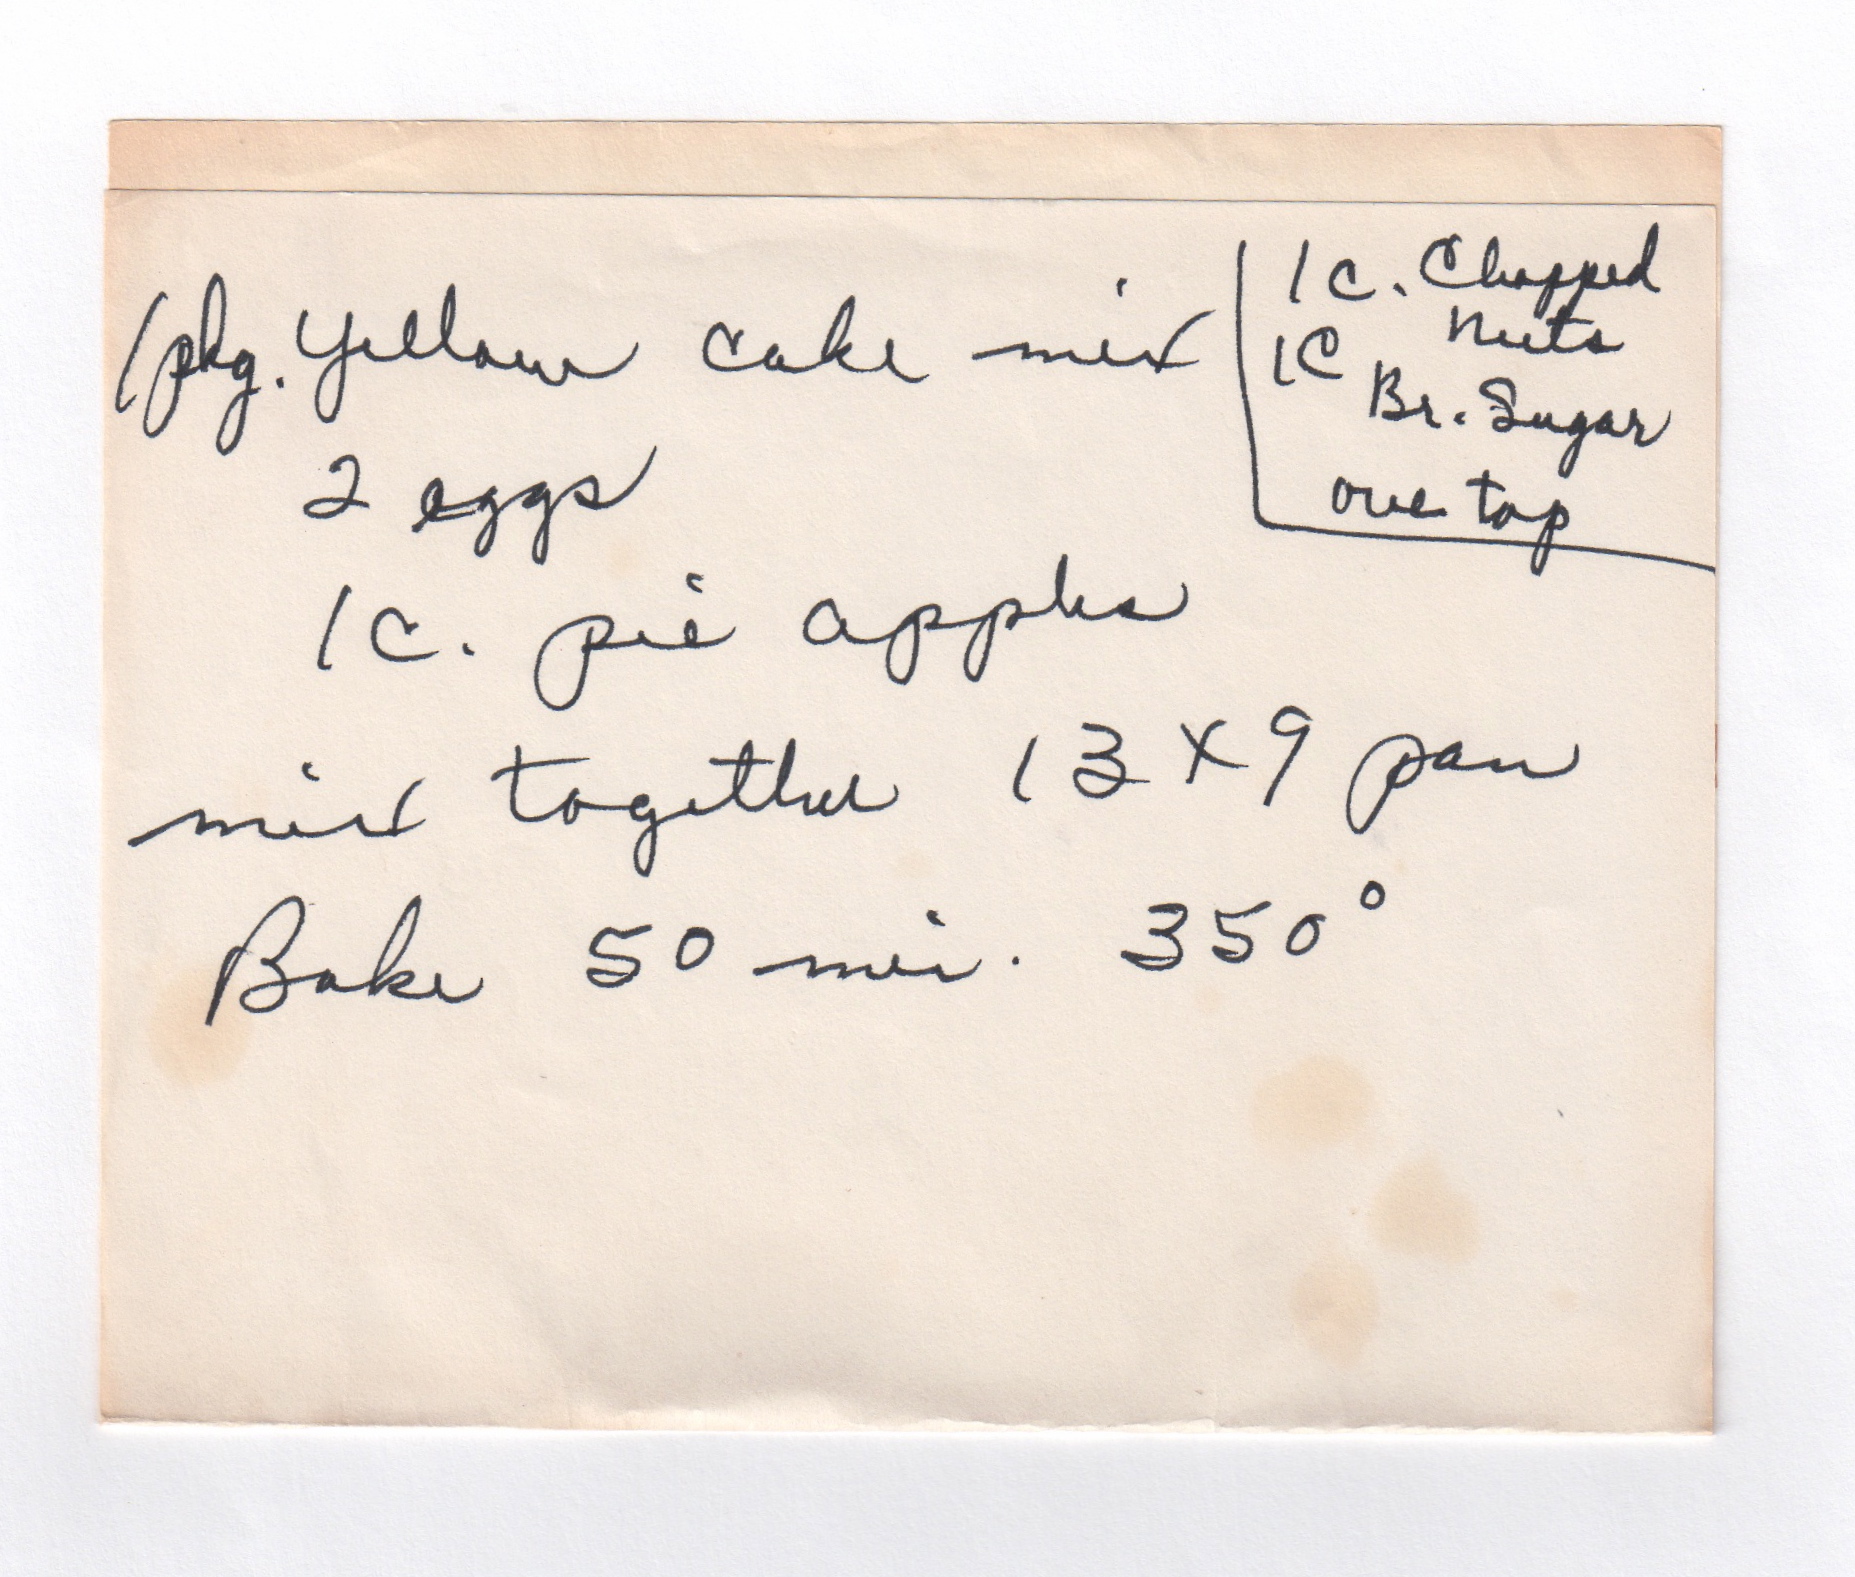 1 pkg. Yellow cake mix
2 eggs
1 c. pie apples
mix together 13 x 9 pan
Bake 50 min. 350°
1 c. Chopped
nuts
1 C
Br. Sugar
one top